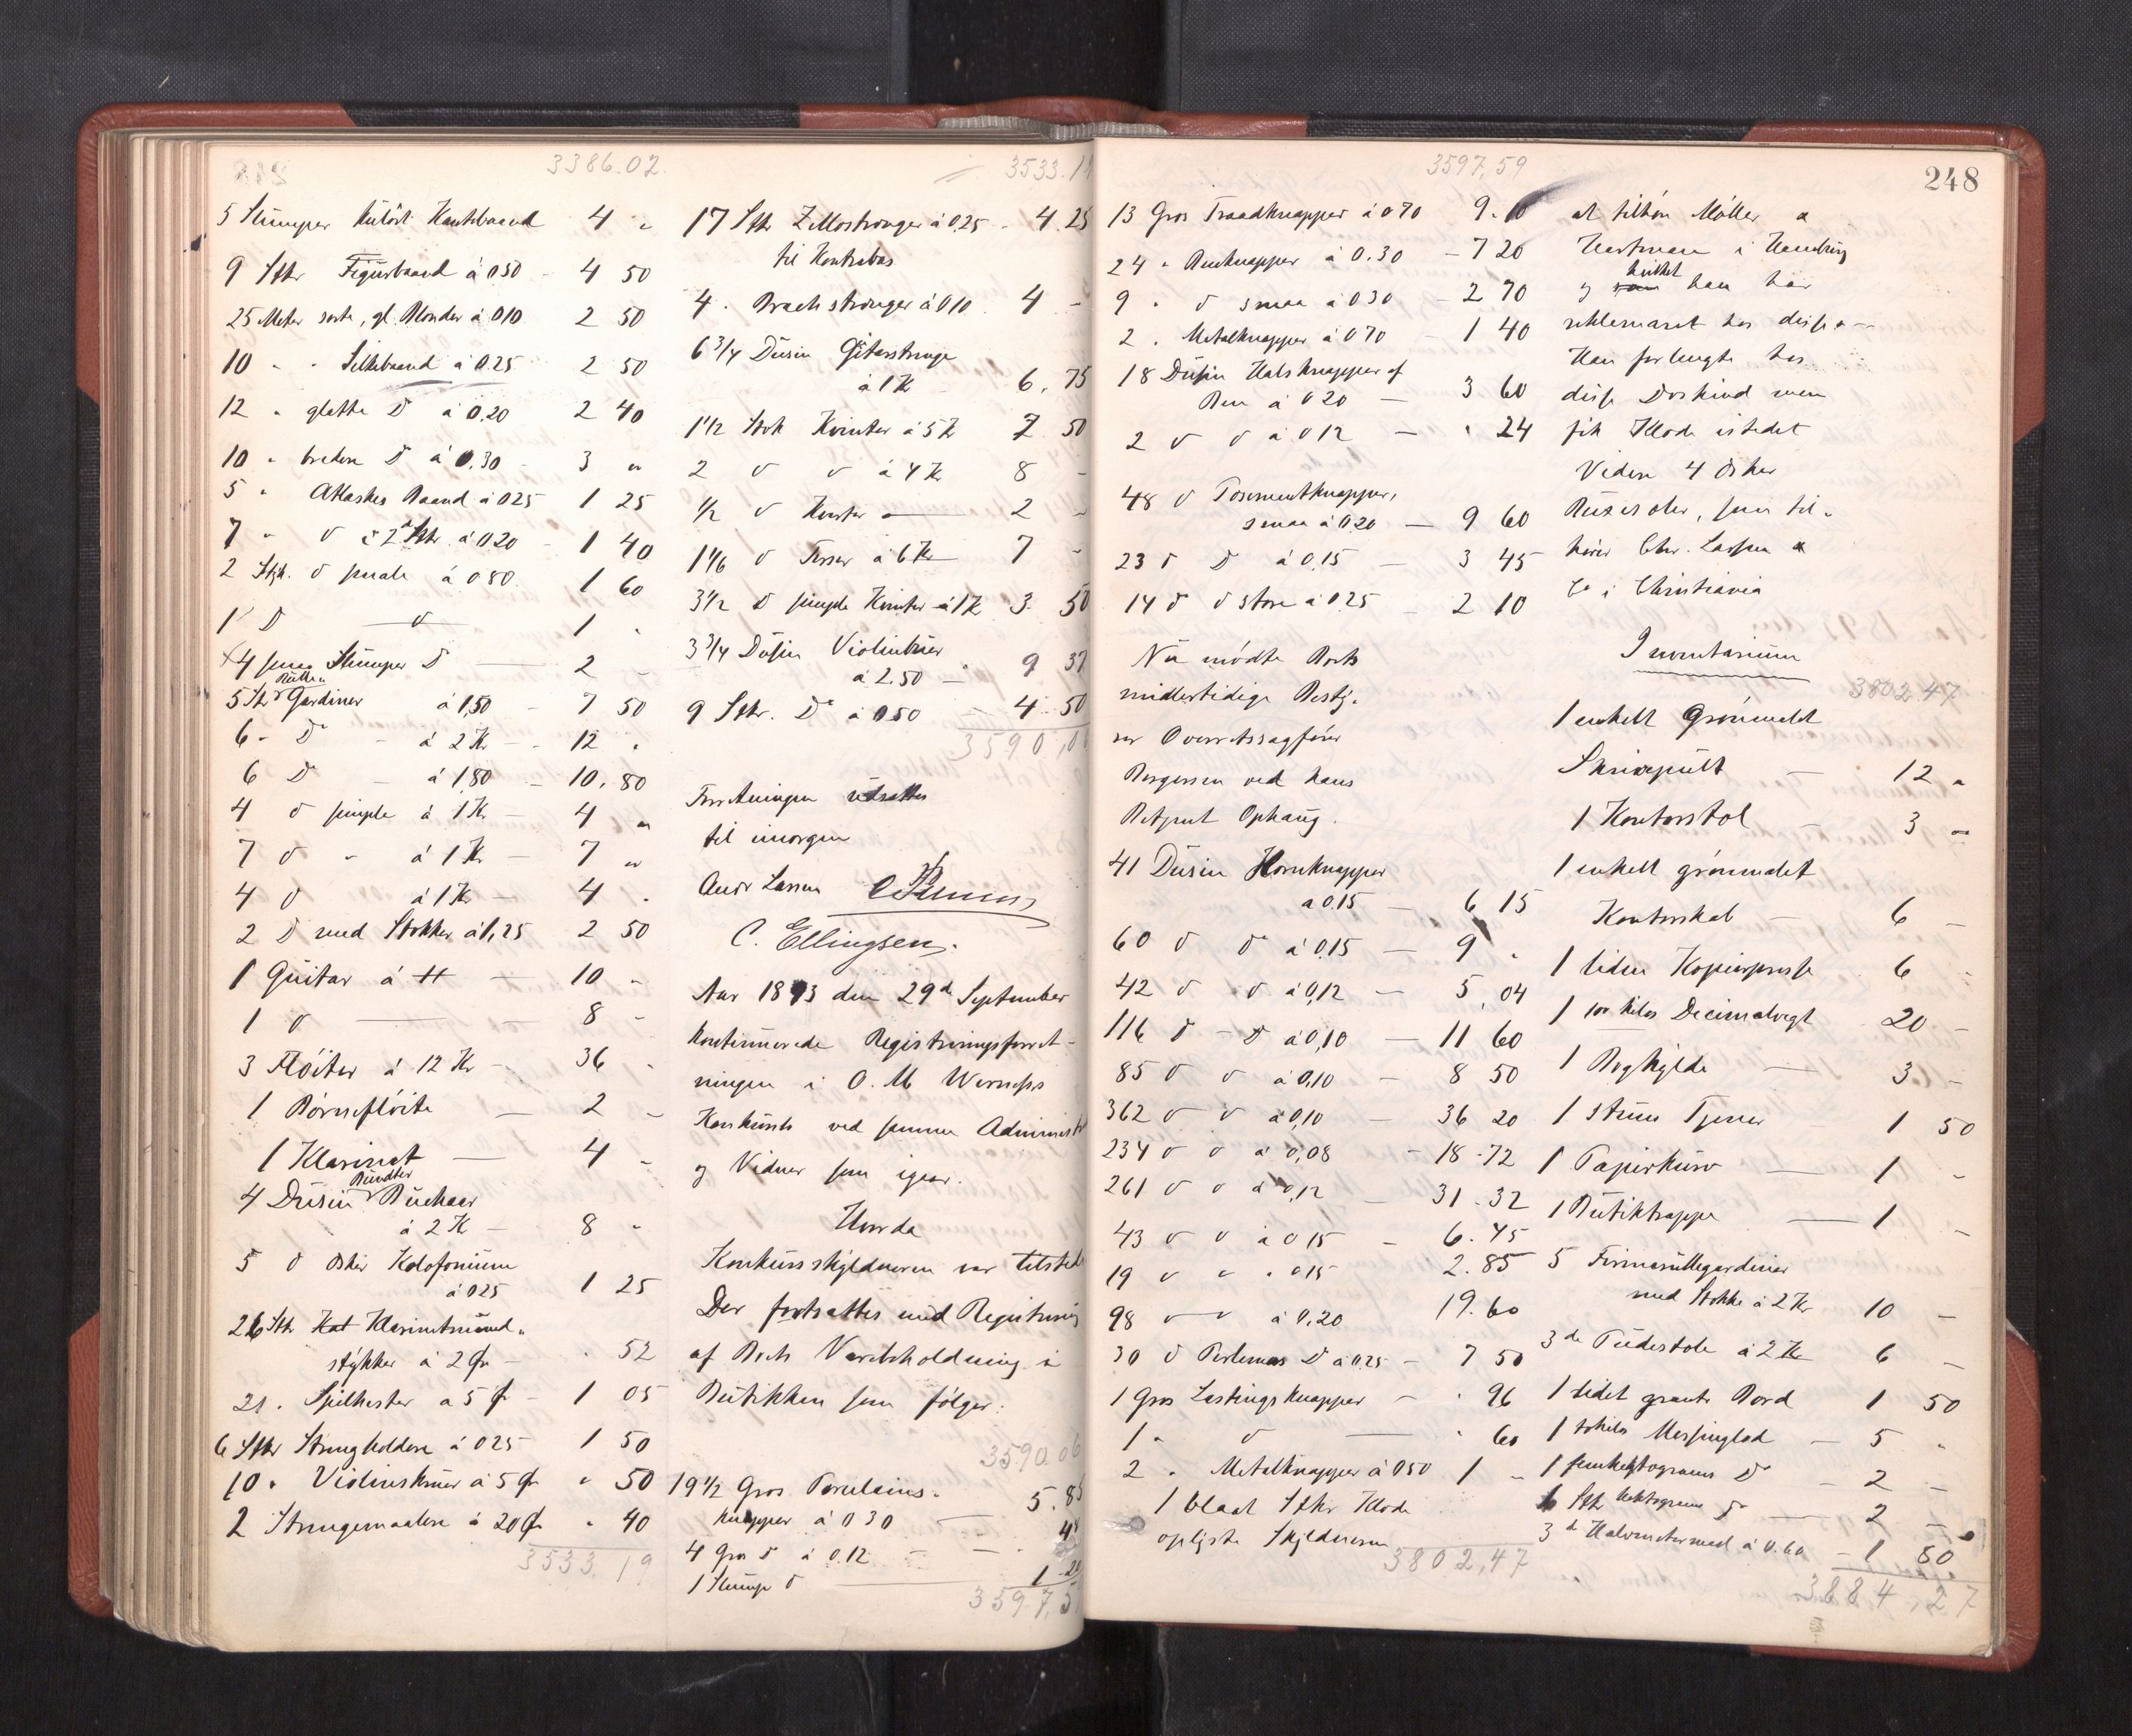 3386.02
5 Stumper kulört Kantebaand 4 "
9 Stkr Figurbaand á 0.50 - 4 50
25 Meter sorte, gl. Blonder á 0.10 2 50
10 " - Silkebaand á 0.25 2 50
12 " glatte Do á 0.20 2 40
10 " bredere Do á 0.30 - 3 "
5 " Atlaskes Baand á 0.25 1 25
7 " Do á 0.20 - 1 40
2 Stk. Do smale á 0.80 1 60
1 Do Do 1 "
4 smaa Stumper Do 2 -
5 Stk Rulle Gardiner á 1,50 - 7 50
6 - Do - á 2 Kr - 12 "
6 Do - á 1,80 - 10,80
4 Do simple á 1 Kr - 4 "
7 Do - á 1 Kr - 7 "
4 Do á 1 Kr - 4 "
2 Do med Stokker á 1,25 2 50
1 Guitar á 10 -
1 Do - 8 -
3 Flöiter á 12 Kr - 36 -
1 Børneflöite - 2 -
1 Klarinet - 4 -
4 Dusin Bundter Buehaar
á 2 K - 8 -
5 Do Æsker Kolofonium
á 0.25 1 25
26 Stkr Kat Klarinetmund-
stykker á 2 Øre - " 52
21 " Spilhester a 5 Ø - 1 05
6 Stkr Strengholdere á 0.25 1 50
10 " Violinskruer á 5 Ø " 50
2 Strengemaalere á 20 Ø " 40
3533.19
3533.19
17 Stkr Zellostrænger á 0.25 - 4.25
til Kontrabas
4 " strænger á 0.10 4 -
6 3/4 Dusin Gitarstrenge
á 1 K - 6.75
1 1/2 Stok Kvinter á 5 K 7 50
2 Do Do á 4 K 8 -
1/2 Do Kvarter 2 -
1 1/6 Do Terser á 6 Kr 7 -
3 1/2 Do simple Kvinter á 1 K 3 50
3 3/4 Dusin Violinbuer
á 2.50 - 9 37
9 Stkr. Do á 0.50 - 4.50
3590,06
Forretningen udsattes
til imorgen
Andr Larsen
C. Ellingsen.
Aar 1893 den 29de September
kontinuerede Registreringsforret-
ningen i O. M
Konkursbo ved samme Administr
og Vidner som igaar.
Konkursskyldneren var tilstede
Der fortsattes med Registrering
af Boets Varebeholdning i
Butikken som følger:
3590.06
19 1/2 Gros Porcelains-
knapper á 0.30 - 5.85
4 Gros Do á 0.12 - 48
1 Stump Do 1 20
3597,59
248
3597,59
13 Gros Traadknapper á 0.70 9.10
24 " Benknapper á 0.30 - 7 20
9 " Do smaa á 0.30 - 2 70
2 " Metalknapper á 0.70 - 1 40
18 Dusin Halsknapper af
Ben á 0.20 - 3 60
2 Do Do á 0.12 - " 24
48 Do Posementknapper,
smaa á 0.20 - 9 60
23 Do Do á 0.15 - 3 45
14 Do Do store á 0.25 - 2 10
Nu mødte Boets
midlertidige Besty-
rer Overretssagfører
Borgersen ved hans
41 Dusin Hornknapper
á 0.15 - 6 15
60 Do Do á 0.15 - 9 "
42 Do Do á 0,12 - 5,04
116 Do - Do á 0,10 - 11 60
85 Do Do á 0,10 - 8 50
362 Do Do á 0,10 - 36 20
234 Do Do á 0,08 - 18.72
261 Do Do á 0,12 - 31.32
43 Do Do á 0.15 - 6.45
19 Do Do " 0.15 2.85
98 Do Do á 0,20 19.60
30 Do Perlemors Do á 0.25 - 7 50
1 Gros Lastingsknapper - " 96
1 " Do - " 60
2 " Metalknapper á 0.50 1 -
1 blaat Stkr Klæde
oplyste Skyldneren
3802,47
at tilhøre Møller &
Hartmann i Hamburg
og hvilket han har
reklameret hos disse -
Han forlangte hos
disse Doskind men
fik Klæde istedet
Videre 4 Æsker
som til-
hører Chr. Larsen &
Co i Christiania
Inventarium
3802.47
1 enkelt Grönmalet
Skrivepult - 12 "
1 Kontorstol - 3 "
1 enkelt grönmalet
Kontorskab - 6 -
1 liden Kopierpresse 6 -
1 100 Kilos Decimalvegt 20 -
1 Boghylde - 3 -
1 stum Tjener 1 50
1 Papirkurv - 1 -
1 Butiktrappe - 1 -
5 Firmarullegardiner
med Stokke á 2 Kr 10 -
3 de Pudestole á 2 Kr 6 -
1 lidet Bord 1 50
1 Messinglod - 5 "
1 femhektograms Do - 2 -
Stk hektograms Do - 2 -
3 de Halvmetermaal á 0.60 - 1 80
3884,27